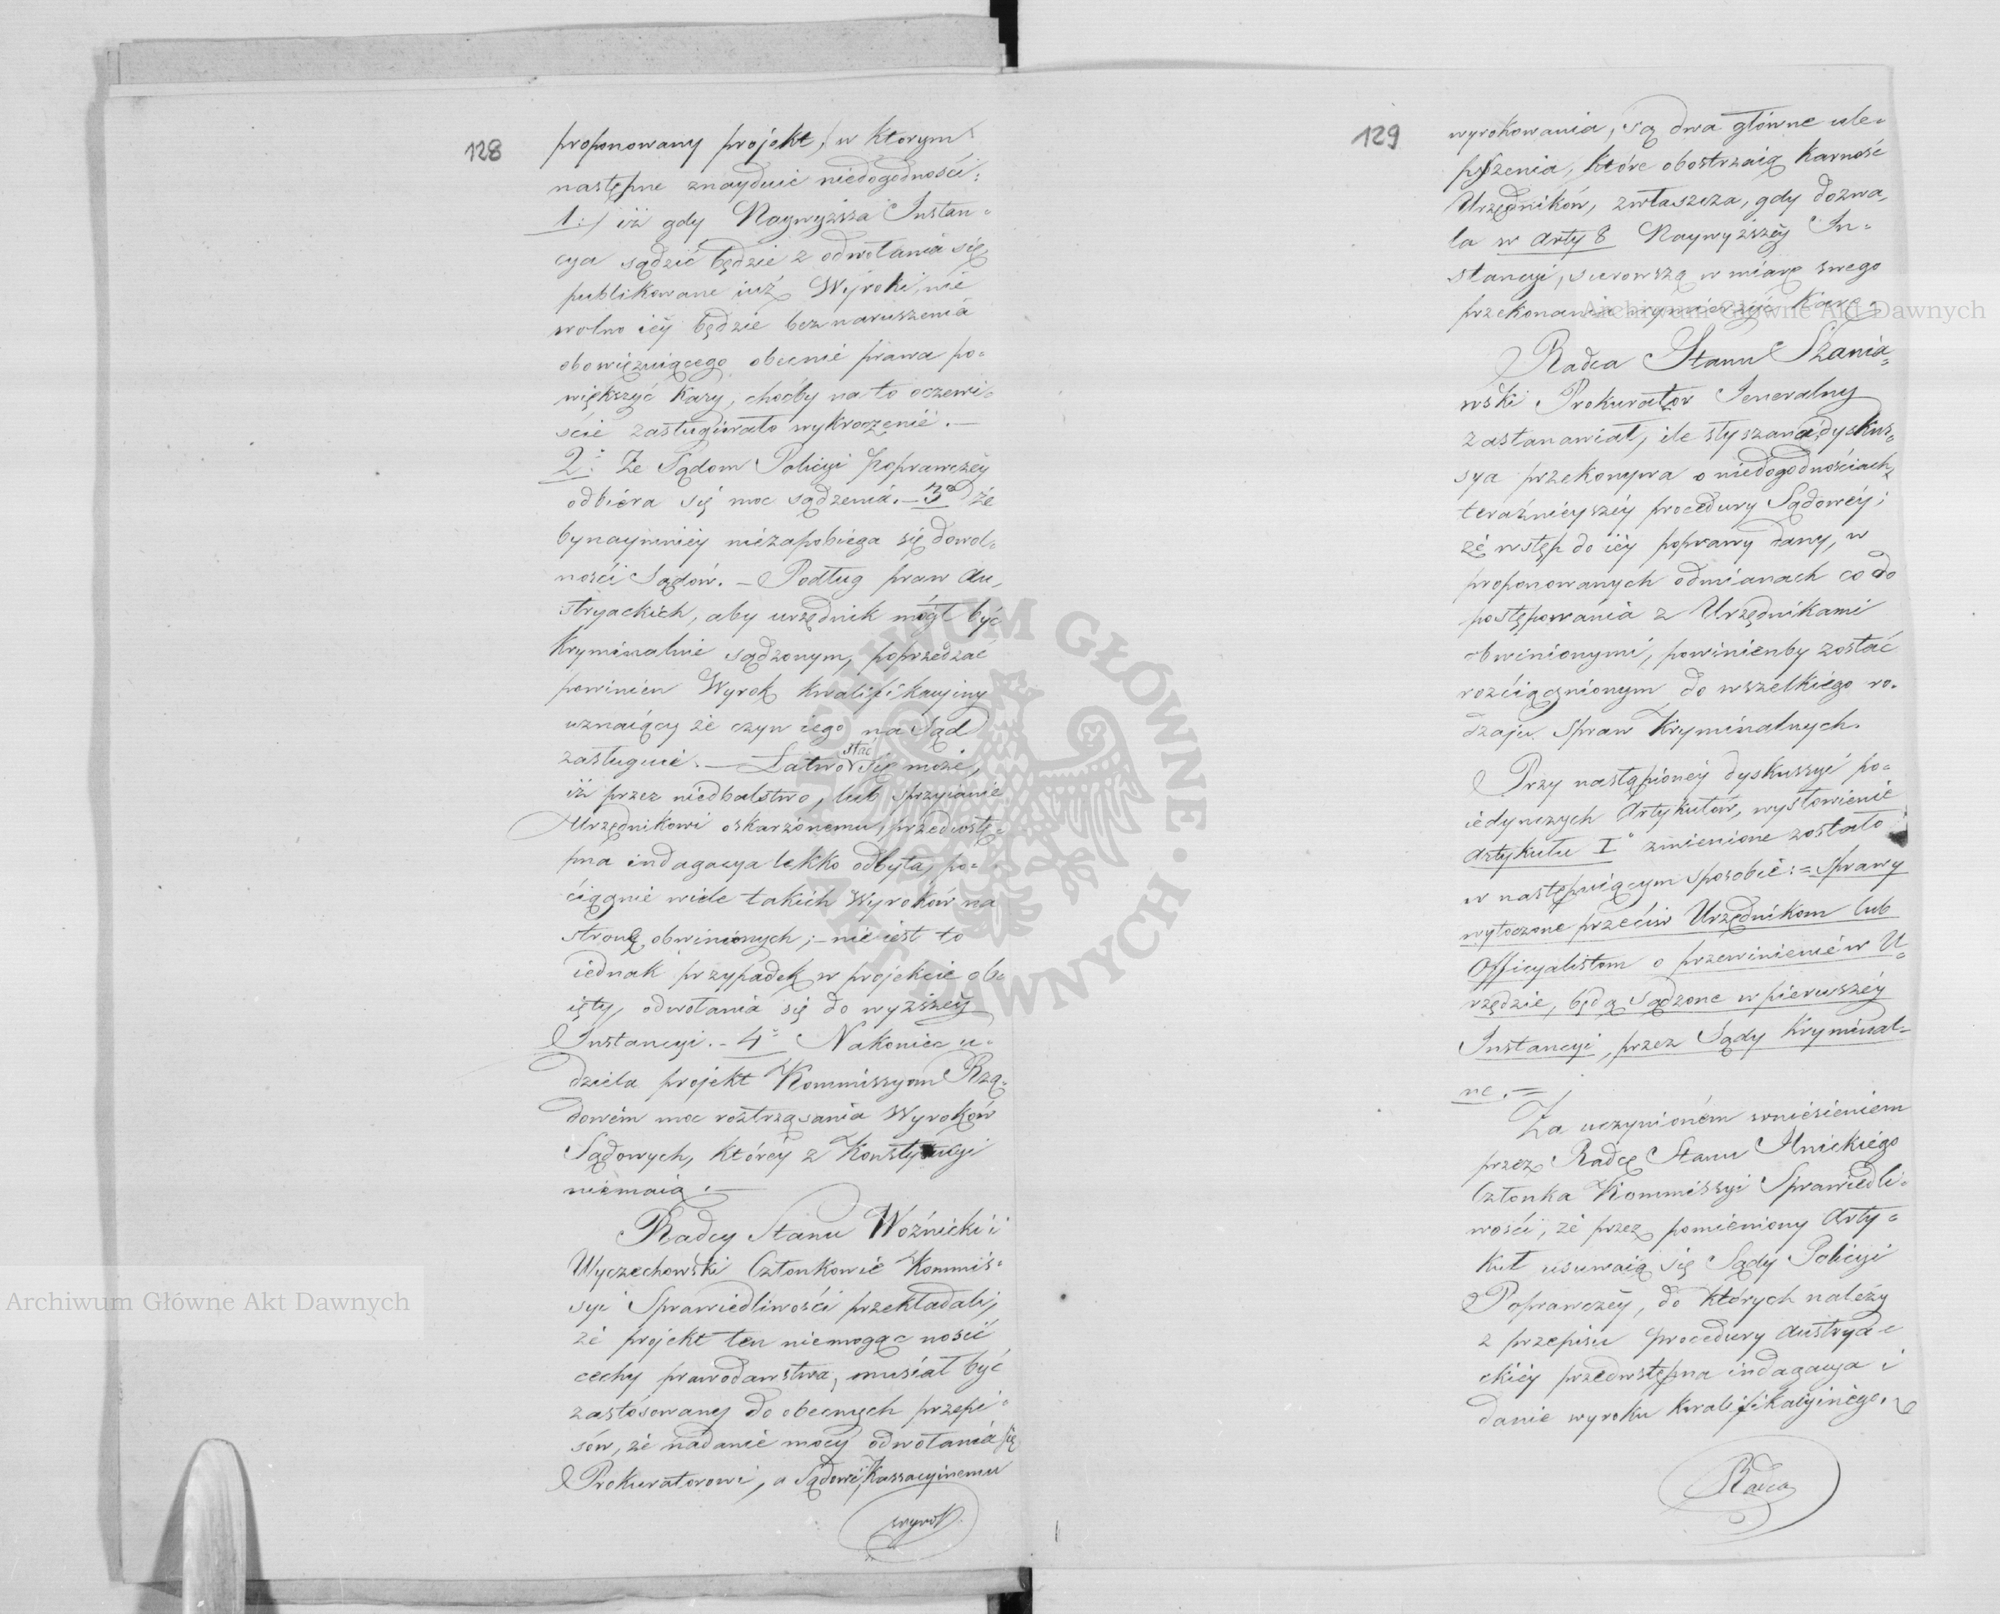 128
proponowany projekt, w którym
następne znayduie niedogodności:
1:/ iż gdy Naywyższa Instan-
cya sądzić będzie z odwołania się
publikowane iuż Wyroki, nie
wolno iéy będzie bez naruszenia
obowięzuiącego obecnie prawa po-
większyć kary, choćby na to oczewi-
ście zasługiwało wykroczenie. —
2: Że Sądom Policyi Poprawczéy
odbiera się moc sądzenia. — 3° że
bynaymniéy niezapobiega się dowol-
ności Sądów. — Podług praw Au-
stryackich, aby urzędnik mógł być
kryminalnie sądzonym, poprzedzać
powinien Wyrok kwalifikacyiny
uznaiący że czyn iego na Sąd
zasługuie. — Łatwo stać się może,
iż przez niedbalstwo, lub sprzyianie
Urzędnikowi oskarżonemu, przedwstę-
pna indagacya lekko odbyta, po-
ciągnie wiele takich Wyroków na
stronę obwinionych; — nie iest to
iednak przypadek w projekcie ob-
ięty, odwołania się do wyższéy
Instancyi. — 4° Nakoniec u-
dziela projekt Kommissyom Rzą-
dowém moc roztrząsania Wyroków
Sądowych, któréy z Konstytucyi
niemaią. —
Radcy Stanu Woźnicki i
Wyczechowski Członkowie Kommis-
syi Sprawiedliwości przekładali,
że projekt ten niemogąc nosić
cechy prawodawstwa, musiał być
zastosowany do obecnych przepi-
sów, że nadanie mocy odwołania się
Prokuratorowi, a Sądowi Kassacyinemu
wyrok
129
wyrokowania, są dwa główne ule-
pszenia, które obostrzaią karność
Urzędników, zwłaszcza, gdy dozwa-
la w Arty 8 Naywyższéy In-
stancyi, surowszą w miarę swego
przekonania wymierzyć karę.
Radca Stanu Szania-
wski Prokurator Jeneralny
zastanawiał, ile słyszana dyskus-
sya przekonywa o niedogodnościach
teraźnieyszéy procedury Sądowéy;
że wstęp do iéy poprawy dany, w
proponowanych odmianach co do
postępowania z Urzędnikami
obwinionymi, powinienby zostać
rozciągnionym do wszelkiego ro-
dzaju spraw Kryminalnych.
Przy nastąpionéy dyskussyi po-
iedynczych Artykułów, wysłowienie
Artykułu I° zmienione zostało
w następuiącym sposobie: = Sprawy
wytoczone przeciw Urzędnikom lub
Officyalistom o przewinienie w U-
rzędzie, będą sądzone w pierwszéy
Instancyi, przez Sądy Kryminal-
ne. =
Za uczynioném wniesieniem
przez Radcę Stanu Ilnickiego
Członka Kommissyi Sprawiedli-
wości, że przez pomieniony Arty-
kuł usuwaią się Sądy Policyi
Poprawczéy, do których należy
z przepisu procedury Austrya-
ckiéy przedwstępna indagacya i
danie wyroku kwalifikacyinego,
Radca
Archiwum Główne Akt Dawnych
Archiwum Główne Akt Dawnych
ARCHIWUM GŁÓWNE AKT DAWNYCH